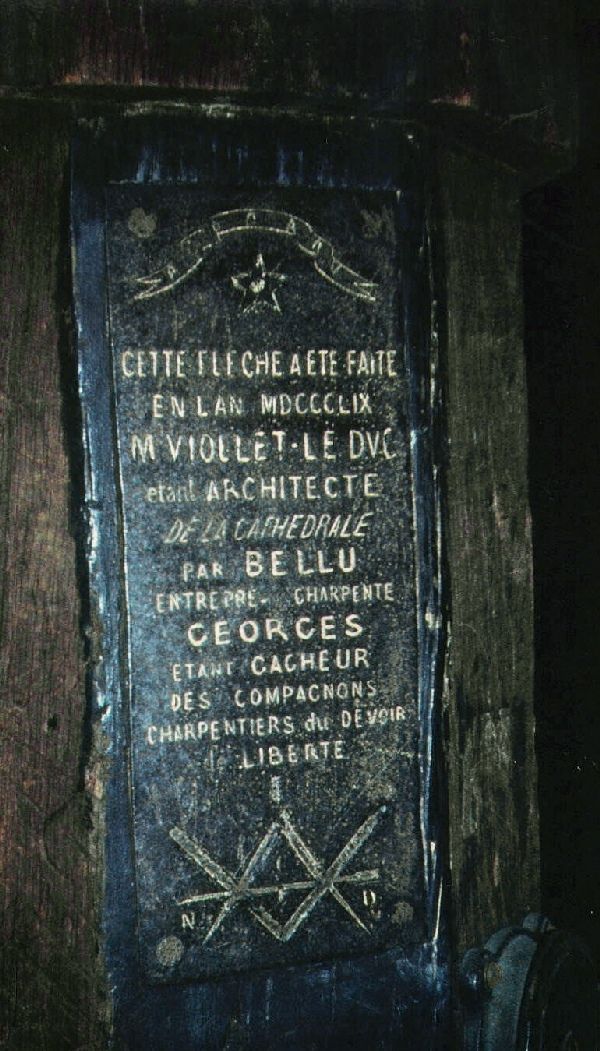 CETTE FLECHE A ETE FAITE
EN LAN MDCCCLIX
M VIOLLET-LE DUC
etant ARCHITECTE
DE LA CATHEDRALE
PAR BELLU
ENTREPRE. CHARPENTE
GEORGES
ETANT GACHEUR
DES COMPAGNONS
CHARPENTIERS du DEVOIR
LIBERTE
N D